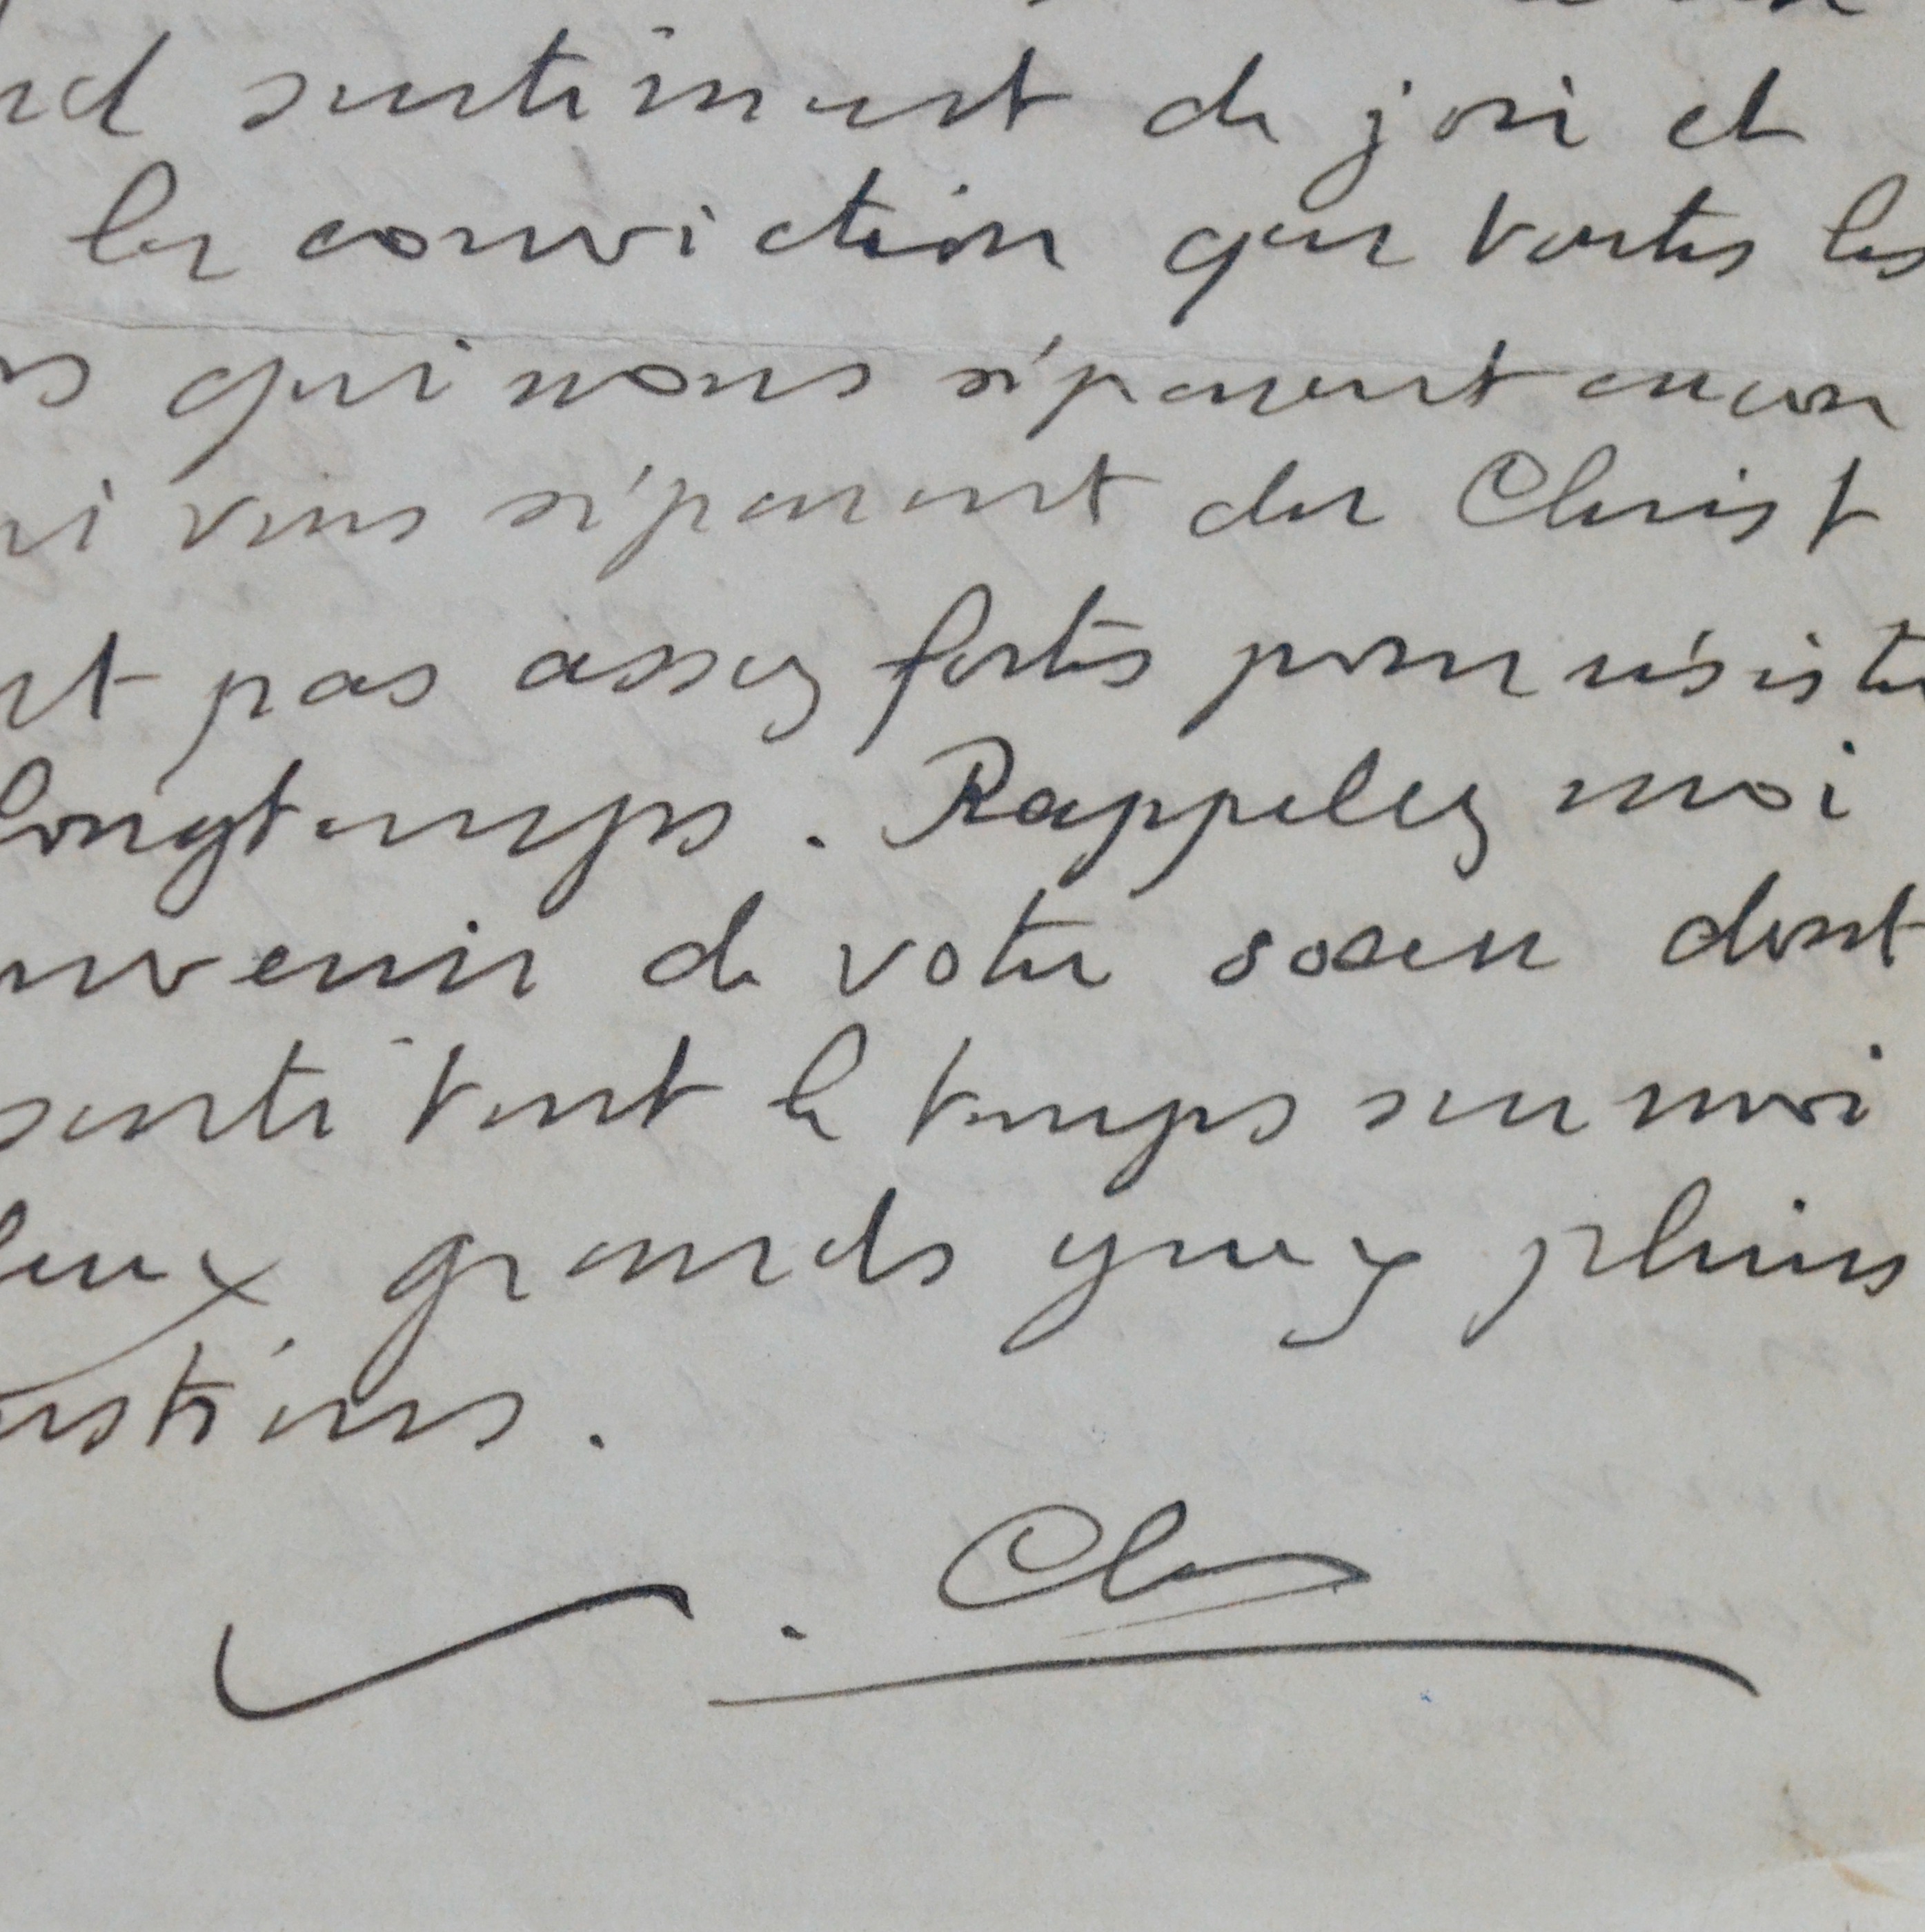 nd sentiment de joie et
la conviction que toutes les
qui nous séparent encore
ui vous séparent du Christ
nt pas assez fortes pour résister
longtemps. Rappelez moi
uvenir de votre soeur dont
senti tout le temps sur moi
deux grands yeux pleins
estions.
. Cl